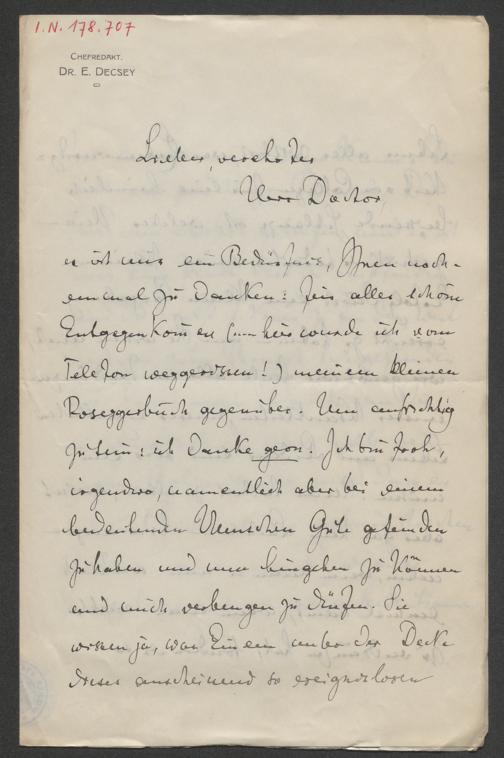 I.N. 178.707
CHEFREDAKT.
DR. E. DECSEY
Lieber, verehrter
Herr Doctor,
es ist mir ein Bedürfnis, Ihnen noch-
einmal zu danken: für alles schöne
Entgegenkom̅en (— hier wurde ich vom
Telefon weggerissen!) meinem kleinen
Roseggerbuch gegenüber. Um aufrichtig
zu sein: ich danke gern. Ich bin froh,
irgendwo, namentlich aber bei einem
bedeutenden Menschen Güte gefunden
zu haben und nun hingehen zu können
und mich verbeugen zu dürfen. Sie
wissen ja, was Einem unter der Decke
dieses anscheinend so ereignislosen